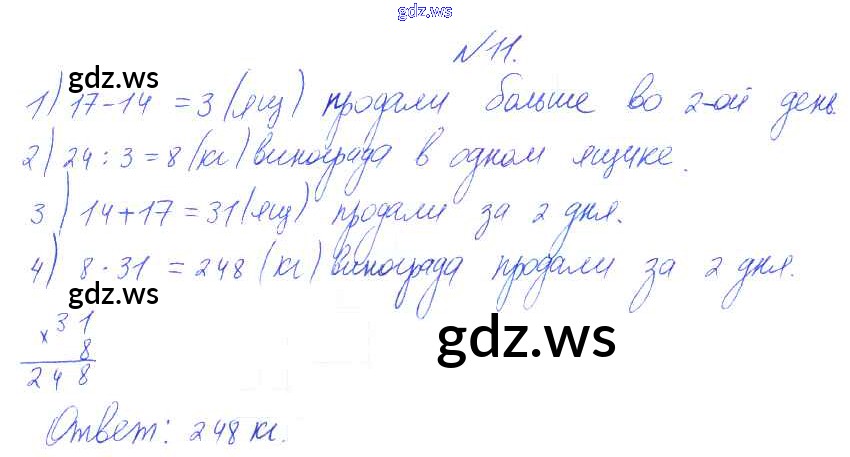 gdz.ws
№ 11.
gdz.ws
1) 17-14 = 3 (ящ) продали больше во 2-ой день.
2) 24 : 3 = 8 (кг) винограда в одном ящике.
3) 14+17 = 31 (ящ) продали за 2 дня.
4) 8 · 31 = 248 (кг) винограда продали за 2 дня.
gdz.ws
× 31
8
gdz.ws
248
Ответ: 248 кг.
gdz.ws